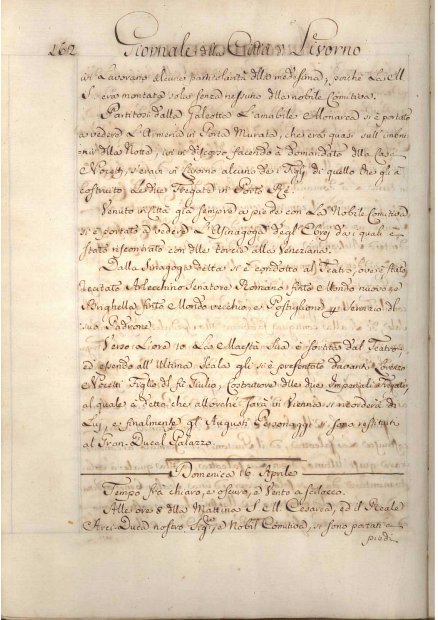 162 Giornale della Città di Livorno
ivi Lavorano alcune particolarità della medesima, poiche La M
S. era montata sola senza nessuno della nobile Comitiva.
Partitosi dalla Galeotta L'amabile Monarca si è portato
a vedere L'Armeria in Porta Murata, che era quasi sull'imbru
nir della Notte, ivi in discorso facendo è domandato della Casa
Nocetti, s'era in Livorno alcuno dei Figlj di quello che gli a
costruito Le due Fregate in Porto Re.
Venuto in Città già sempre a piede con La Nobile Comitiva
si è portato a vedere L'Asinagoga degl'Ebrej da i quali è
stato riscontrato con delle torcie alla Veneziana.
Dalla Sinagoga detta si è condotto al Teatro, ove è stato
recitato Arlecchino Senatore Romano finto Mondo nuovo, e
Brighella finto Mondo vecchio, e Postiglione per servizio del
suo Padrone.
Verso L'ore 10 La Maestà Sua è sortita dal Teatro,
ed essendo all'Ultima Scala gli si è presentato davanti Lorenzo
Nocetti Figlio del fù Giulio, Costruttore delle due Imperiali Fregate,
al quale à detta che allorche sarà in Vienna si ricorderà di
Luj, e finalmente gl'Augusti Personaggi si sono restituiti
al Gran-Ducal Palazzo.
Domenica 16 Aprile
Tempo frà chiaro, e oscuro, e Vento a scilocco.
Alle ore 8 della Mattina S. M. Cesarea, ed il Reale
Arci-Duca nostro Sigre, e Nobil Comitiva, si sono portati a
piedi